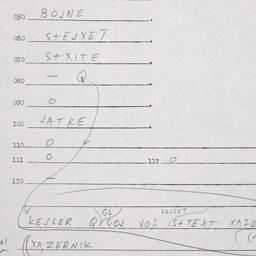 050 BOJNE
060 S+EJXET
070 S+XITE
080 — Q
090 O
100 JATKE
110 O
111 O 112 O
120 —
GL
KEJLER QYGOJ VOS IS+TEXT XAZE
(XA,ZERNIK